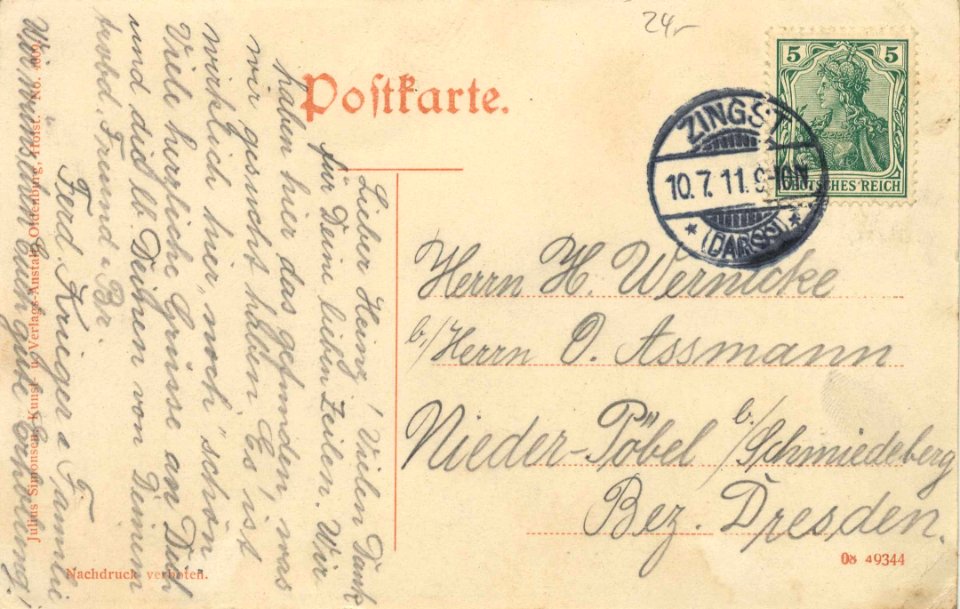 24,-
Postkarte.
5 5
DEUTSCHES REICH
ZINGST
10.7.11.9-10N
* (DARSS) *
Herrn H. Wernicke
b/Herrn O. Assmann
Nieder-Pöbel b/Schmiedeberg
Bez. Dresden.
Lieber Heinz! Vielen Dank
für Deine lieben Zeilen. Wir
haben hier das gefunden, was
wir gesucht haben. Es ist
wirklich hier „noch" schön.
Viele herzliche Grüsse an Dich
und desslb. Deinen von Deinem
Freund u. Br.
Ferd. Krüger u Familie
Wir wünschen Euch gute Erholung!
Julius Simonsen, Kunst- u. Verlags-Anstalt, Oldenburg, Holst. No.
Nachdruck verboten.
08 49344